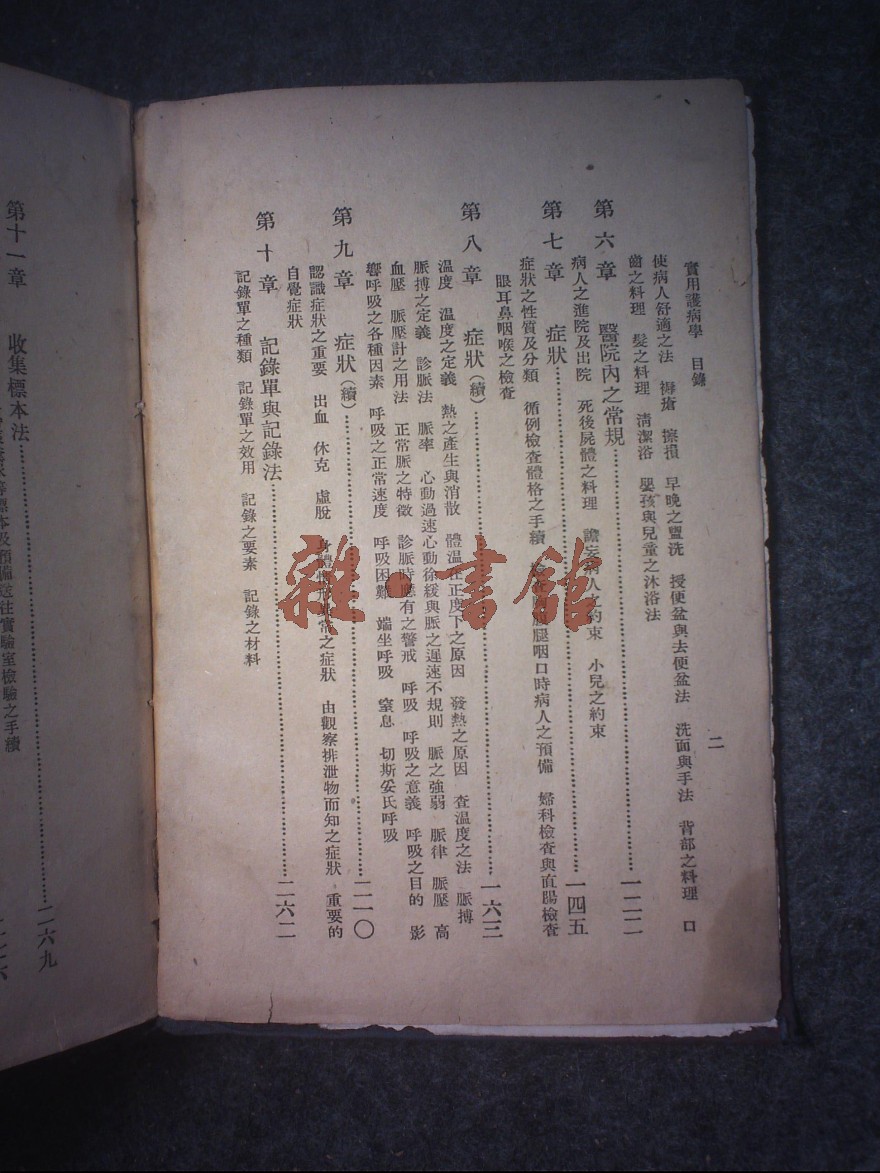 實用護病學 目錄
二
使病人舒適之法 褥瘡 擦損 早晚之盥洗 授便盆與去便盆法 洗面與手法 背部之料理 口
齒之料理 髮之料理 清潔浴 嬰孩與兒童之沐浴法
第六章 醫院內之常規……一二二
病人之進院及出院 死後屍體之料理 譫妄病人之約束 小兒之約束
第七章 症狀……一四五
症狀之性質及分類 循例檢查體格之手續 檢查 腿咽口時病人之預備 婦科檢查與直腸檢查
眼耳鼻咽喉之檢查
第八章 症狀(續)……一六三
溫度 溫度之定義 熱之產生與消散 體溫在正度下之原因 發熱之原因 查溫度之法 脈搏
脈搏之定義 診脈法 脈率 心動過速心動徐緩與脈之遲速不規則 脈之強弱 脈律 脈壓 高
血壓 脈壓計之用法 正常脈之特徵 診脈時應有之警戒 呼吸 呼吸之意義 呼吸之目的 影
響呼吸之各種因素 呼吸之正常速度 呼吸困難 端坐呼吸 窒息 切斯妥氏呼吸
第九章 症狀(續)……二一〇
認識症狀之重要 出血 休克 虛脫 身體 常之症狀 由觀察排泄物而知之症狀 重要的
自覺症狀
第十章 記錄單與記錄法……二六二
記錄單之種類 記錄單之效用 記錄之要素 記錄之材料
第十一章 收集標本法……二六九
標本及預備送往實驗室檢驗之手續
雜書館